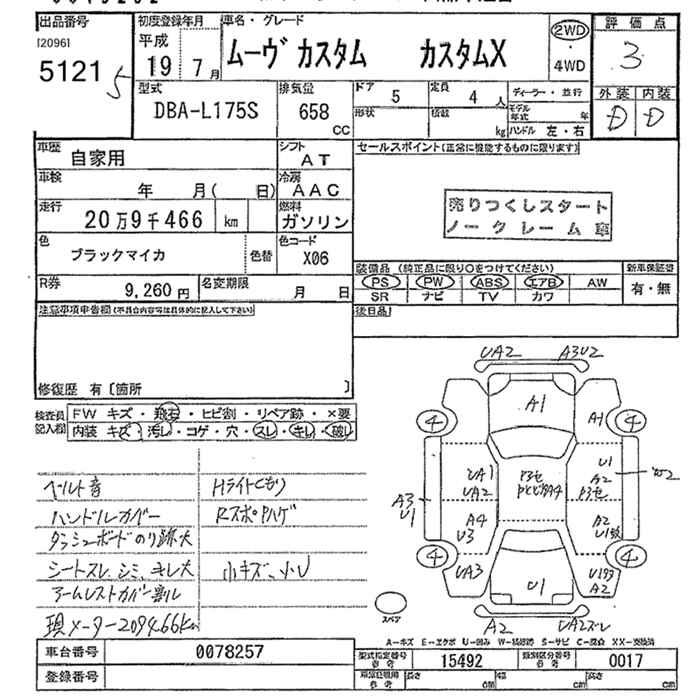 出品番号
[2096]
5121
5
初度登録年月
平成
19年
7月
車名・グレード
ムーヴカスタム カスタムX
2WD
・
4WD
評価点
3
外装 内装
D D
型式
DBA-L175S
排気量
658
CC
ドア
5
定員
4人
形状
積載
kg
ディーラー・並行
モデル年式 年
ハンドル 左・右
車歴
自家用
シフト
AT
車検
年 月( 日)
冷房
AAC
走行
20万9千466 km
燃料
ガソリン
色
ブラックマイカ
色替
色コード
X06
R券
9,260円
名変期限
月 日
セールスポイント(正常に機能するものに限ります)
売りつくしスタート
ノークレーム車
装備品 (純正品に限り○をつけてください)
新車保証書
PS PW ABS エアB AW
SR ナビ TV カワ
有・無
後日品
注意事項申告欄(不具合内容等は具体的に記入して下さい)
修復歴 有〔箇所 〕
検査員記入欄
FW キズ・飛石・ヒビ割・リペア跡・×要
内装 キズ・汚れ・コゲ・穴・スレ・キレ・破れ
ベルト音
ハンドルカバー
ダッシュボードのり跡大
シートスレ、シミ、キレ大
アームレストカバー割れ
現メーター209466km
Hライトくもり
RスポPハゲ
小キズ、小U
UA2 A3U2
A1
4 A1 4
UA1
UA2
U1
A2
A3
U1
A4
U3
A2
4 4
UA3
U1
A2
A2
スペア
A-キズ E-エクボ U-凹み W-補修跡 S-サビ C-腐食 XX-交換済
車台番号
0078257
登録番号
型式指定番号
参考
15492
類別区分番号
参考
0017
長さ cm
幅 cm
高さ cm